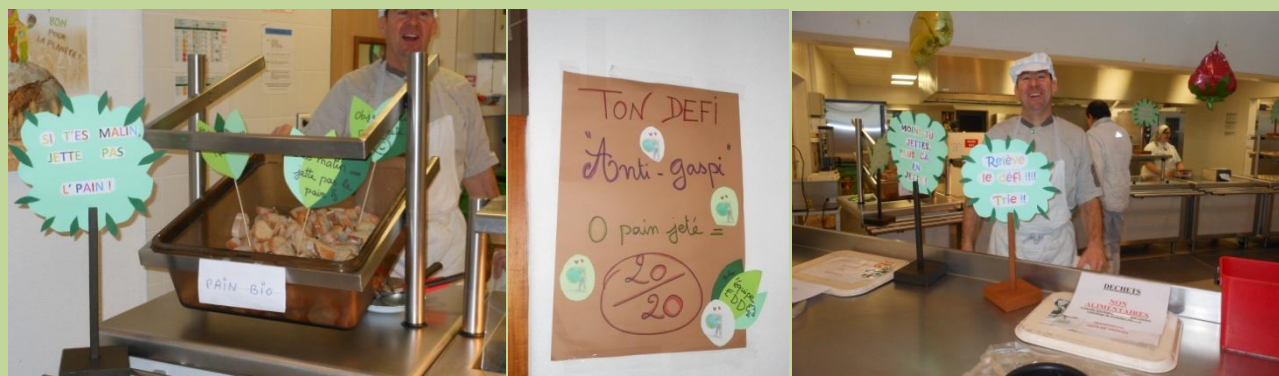 BON
POUR
LA PLANÈTE!
SI T'ES MALIN,
JETTE PAS
L'PAIN!
malin
jette pas le
pain
PAIN BIO
TON DEFI
"Anti-gaspi"
0 pain jeté =
20/20
équipe
EDD
MOINS TU
JETTES,
PLUS ÇA
EN
JETTE
Relève
le défi!!!!
Trie!!
DECHETS
NON
ALIMENTAIRES